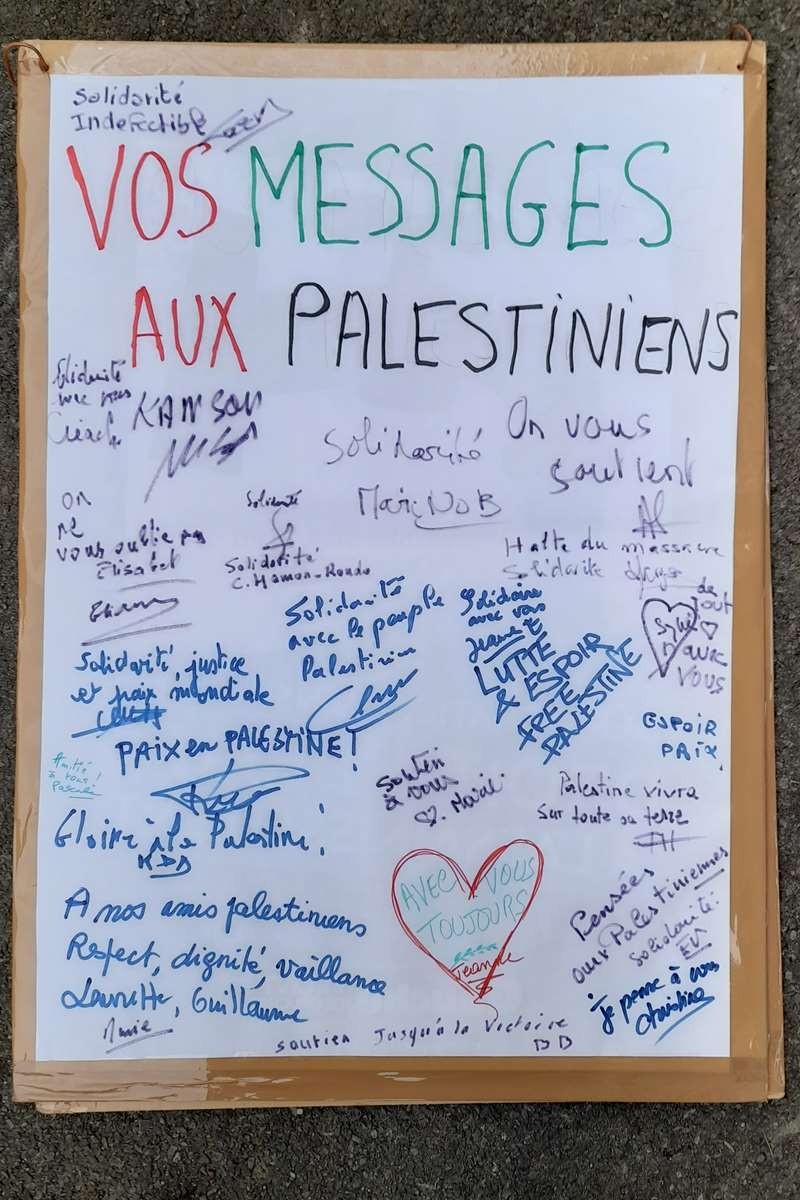 Solidarité
Indéfectible
VOS MESSAGES
AUX PALESTINIENS
Solidarité
avec vous
KAMSON
Solidarité
Marie NOB
On vous
soutient
on
ne
vous oublie pas
Elisabet
Solidarité
Solidarité
C. Hamon-Rondo
Halte du massacre
Solidarité
de
tout
♡
avec
vous
Solidarité
avec le peuple
Palestinien
Solidaire
avec vous
LUTTE
& ESPOIR
FREE
PALESTINE
Solidarité, justice
et paix mondiale
PAIX en PALESTINE !
ESPOIR
PAIX
Amitié
à vous !
Pascale
Soutien
à vous
♡
Palestine vivra
sur toute sa terre
Gloire à la Palestine !
AVEC VOUS
TOUJOURS
Pensées
aux Palestiniennes
solidarité
A nos amis palestiniens
Respect, dignité, vaillance
Guillaume
je pense à vous
Christine
soutien jusqu'à la victoire